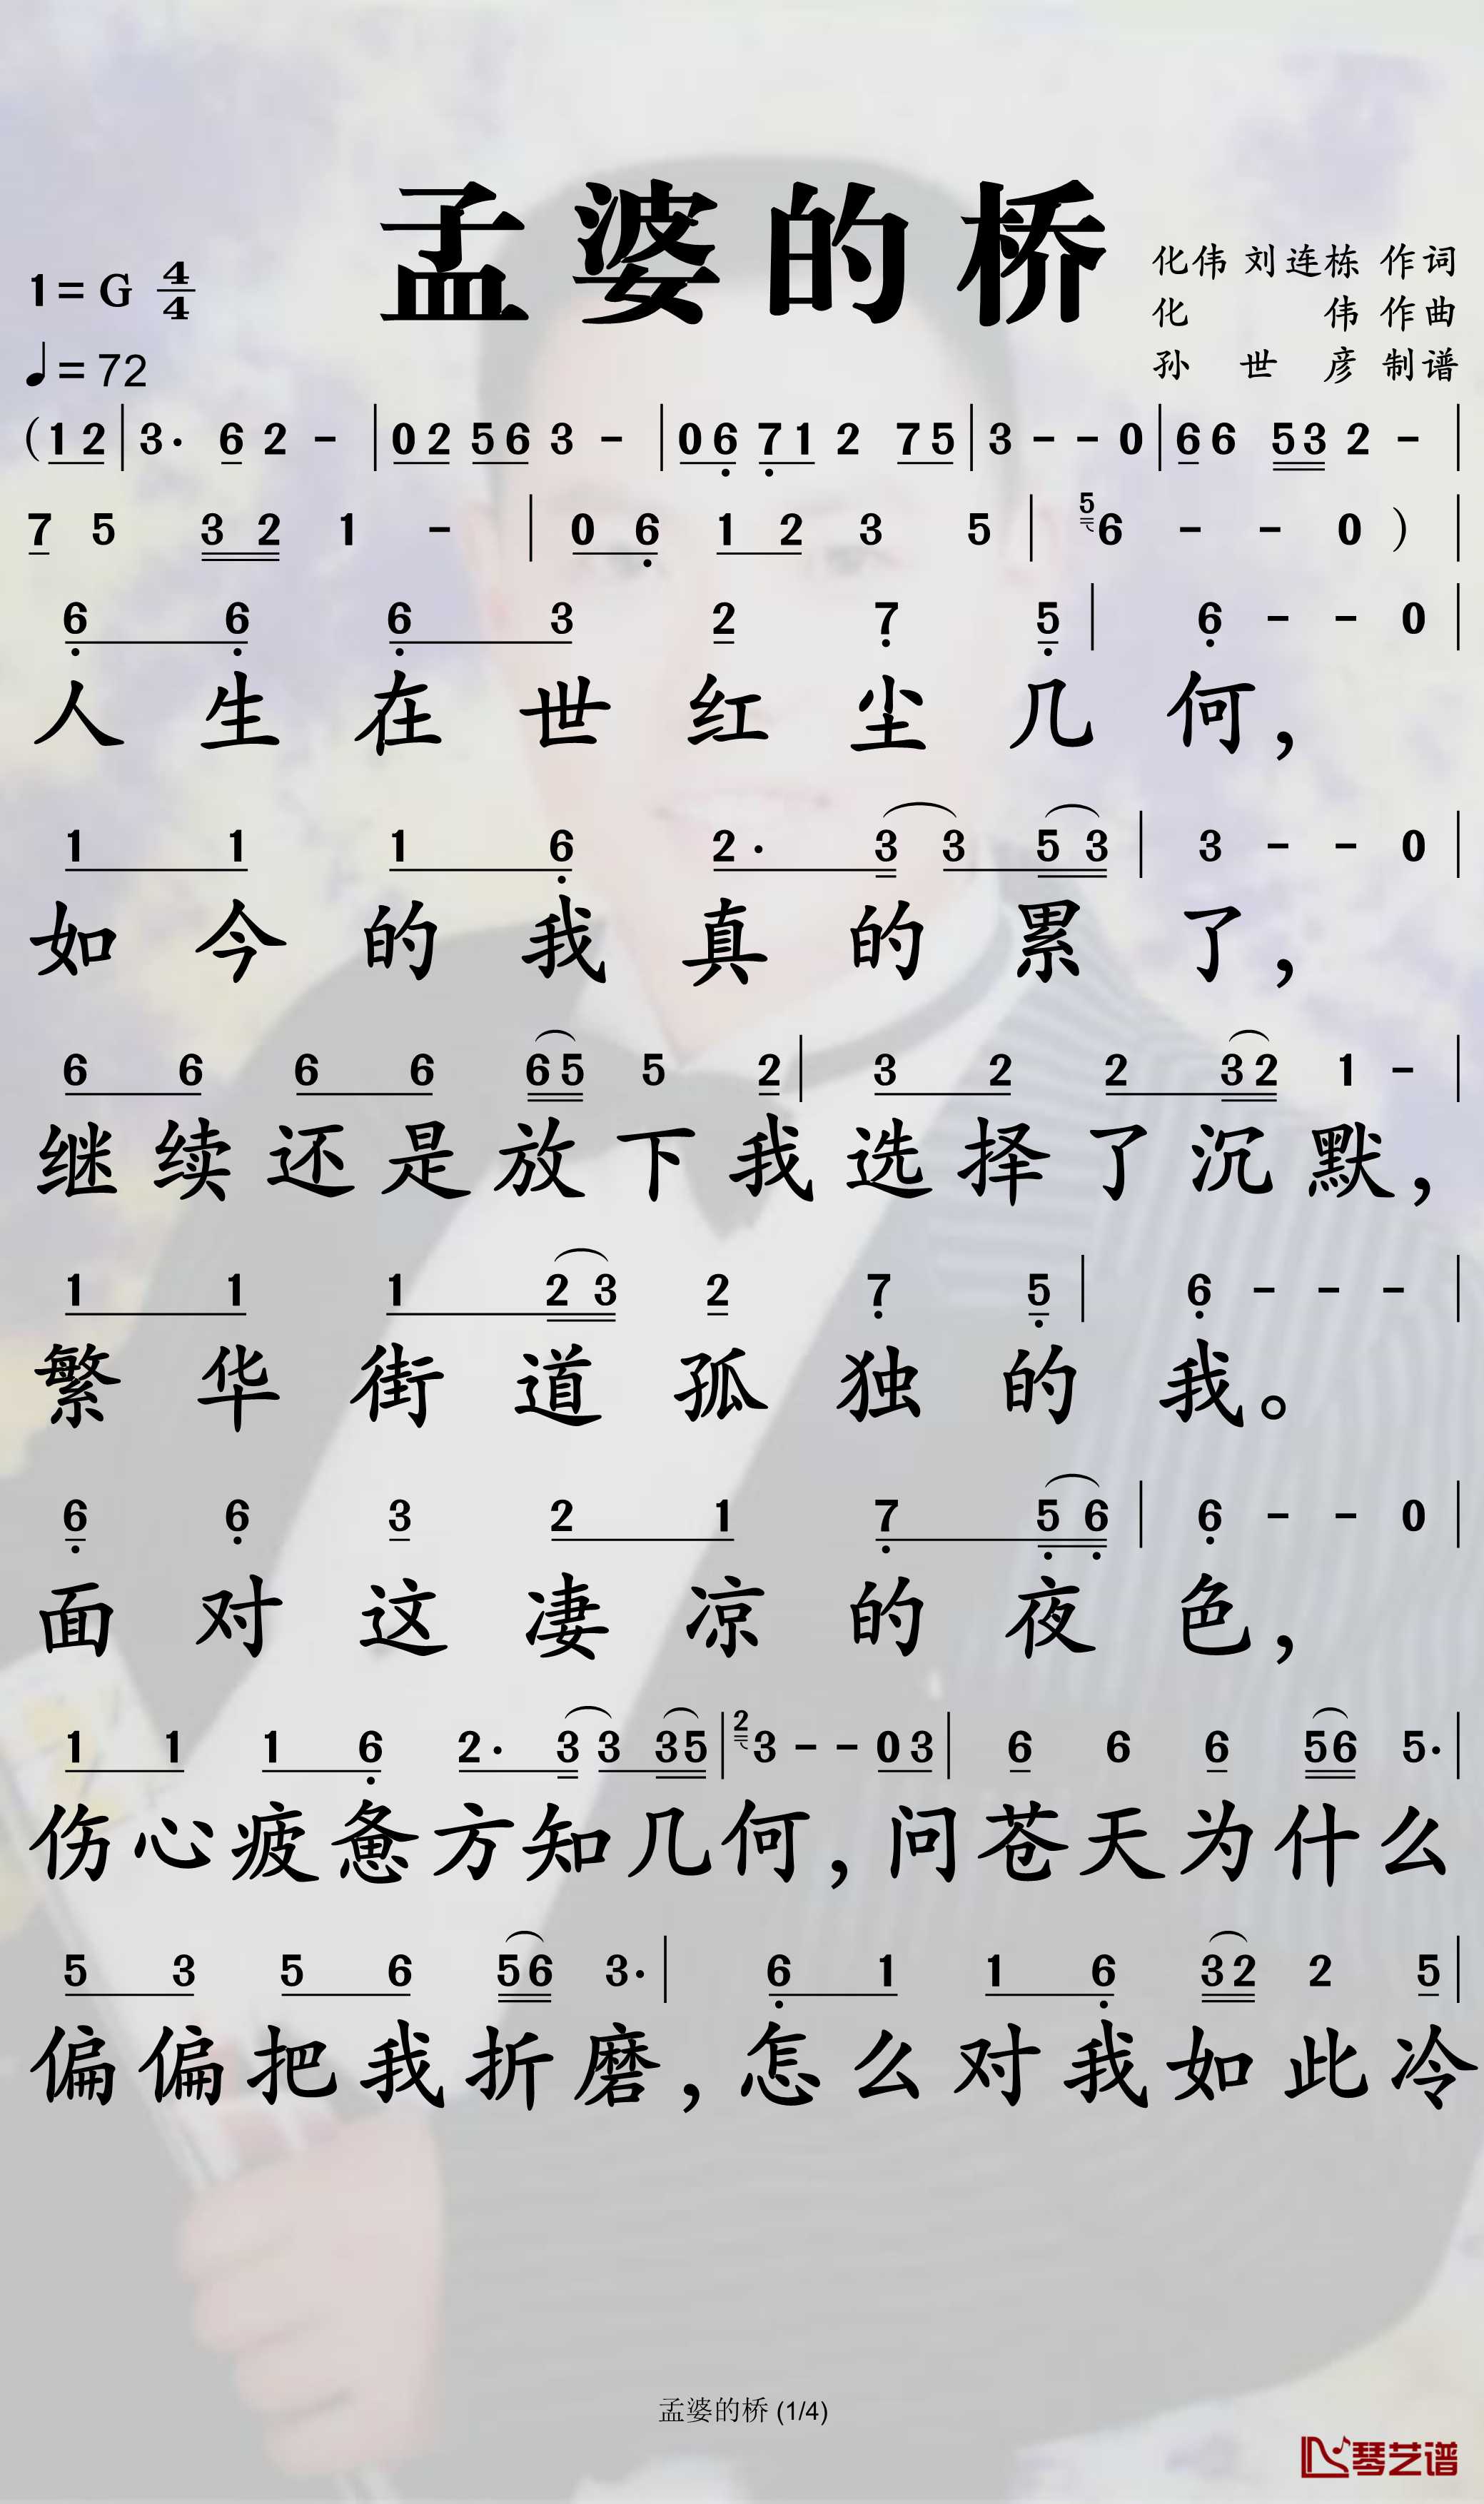 孟婆的桥
1=G 4/4
化伟 刘连栋 作词
化 伟 作曲
♩=72
孙 世 彦 制谱
(1 2 | 3· 6 2 - | 0 2 5 6 3 - | 0 6 7 1 2 7 5 | 3 - - 0 | 6 6 5 3 2 - |
7 5 3 2 1 - | 0 6 1 2 3 5 | 5 6 - - 0 ) |
6 6 6 3 2 7 5 | 6 - - 0 |
人生在世红尘几何，
1 1 1 6 2· 3 3 5 3 | 3 - - 0 |
如今的我真的累了，
6 6 6 6 6 5 5 2 | 3 2 2 3 2 1 - |
继续还是放下我选择了沉默，
1 1 1 2 3 2 7 5 | 6 - - - |
繁华街道孤独的我。
6 6 3 2 1 7 5 6 | 6 - - 0 |
面对这凄凉的夜色，
1 1 1 6 2· 3 3 3 5 | 2 3 - - 0 3 | 6 6 6 5 6 5· |
伤心疲惫方知几何，问苍天为什么
5 3 5 6 5 6 3· | 6 1 1 6 3 2 2 5 |
偏偏把我折磨，怎么对我如此冷
孟婆的桥 (1/4)
琴艺谱